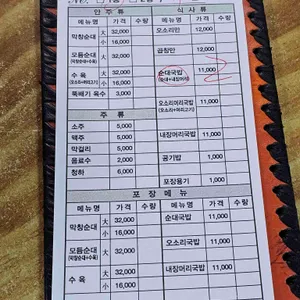 안 주 류 식 사 류
메뉴명 가 격 수 량 메뉴명 가 격 수량
막창순대 대 32,000 오소리만 12,000
소 16,000
모듬순대 대 32,000 곱창만 12,000
(막창순대+수육) 소 16,000
수 육 대 32,000 순대국밥 11,000 2
(오소리+머리고기) 소 16,000 (순대+내장머리)
뚝배기 옥수 3,000 오소리머리국밥 11,000
(오소리+머리고기)
주 류
소주 5,000 내장머리국밥 11,000
맥주 5,000
막걸리 5,000 공기밥 1,000
음료수 2,000
청하 6,000 포장용기 1,000
포 장 메 뉴
메뉴명 가 격 수 량 메뉴명 가 격 수량
막창순대 대 32,000 순대국밥 11,000
소 16,000
모듬순대 대 32,000 오소리국밥 11,000
(막창순대+수육) 소 16,000
수 육 대 32,000 내장머리국밥 11,000
소 16,000